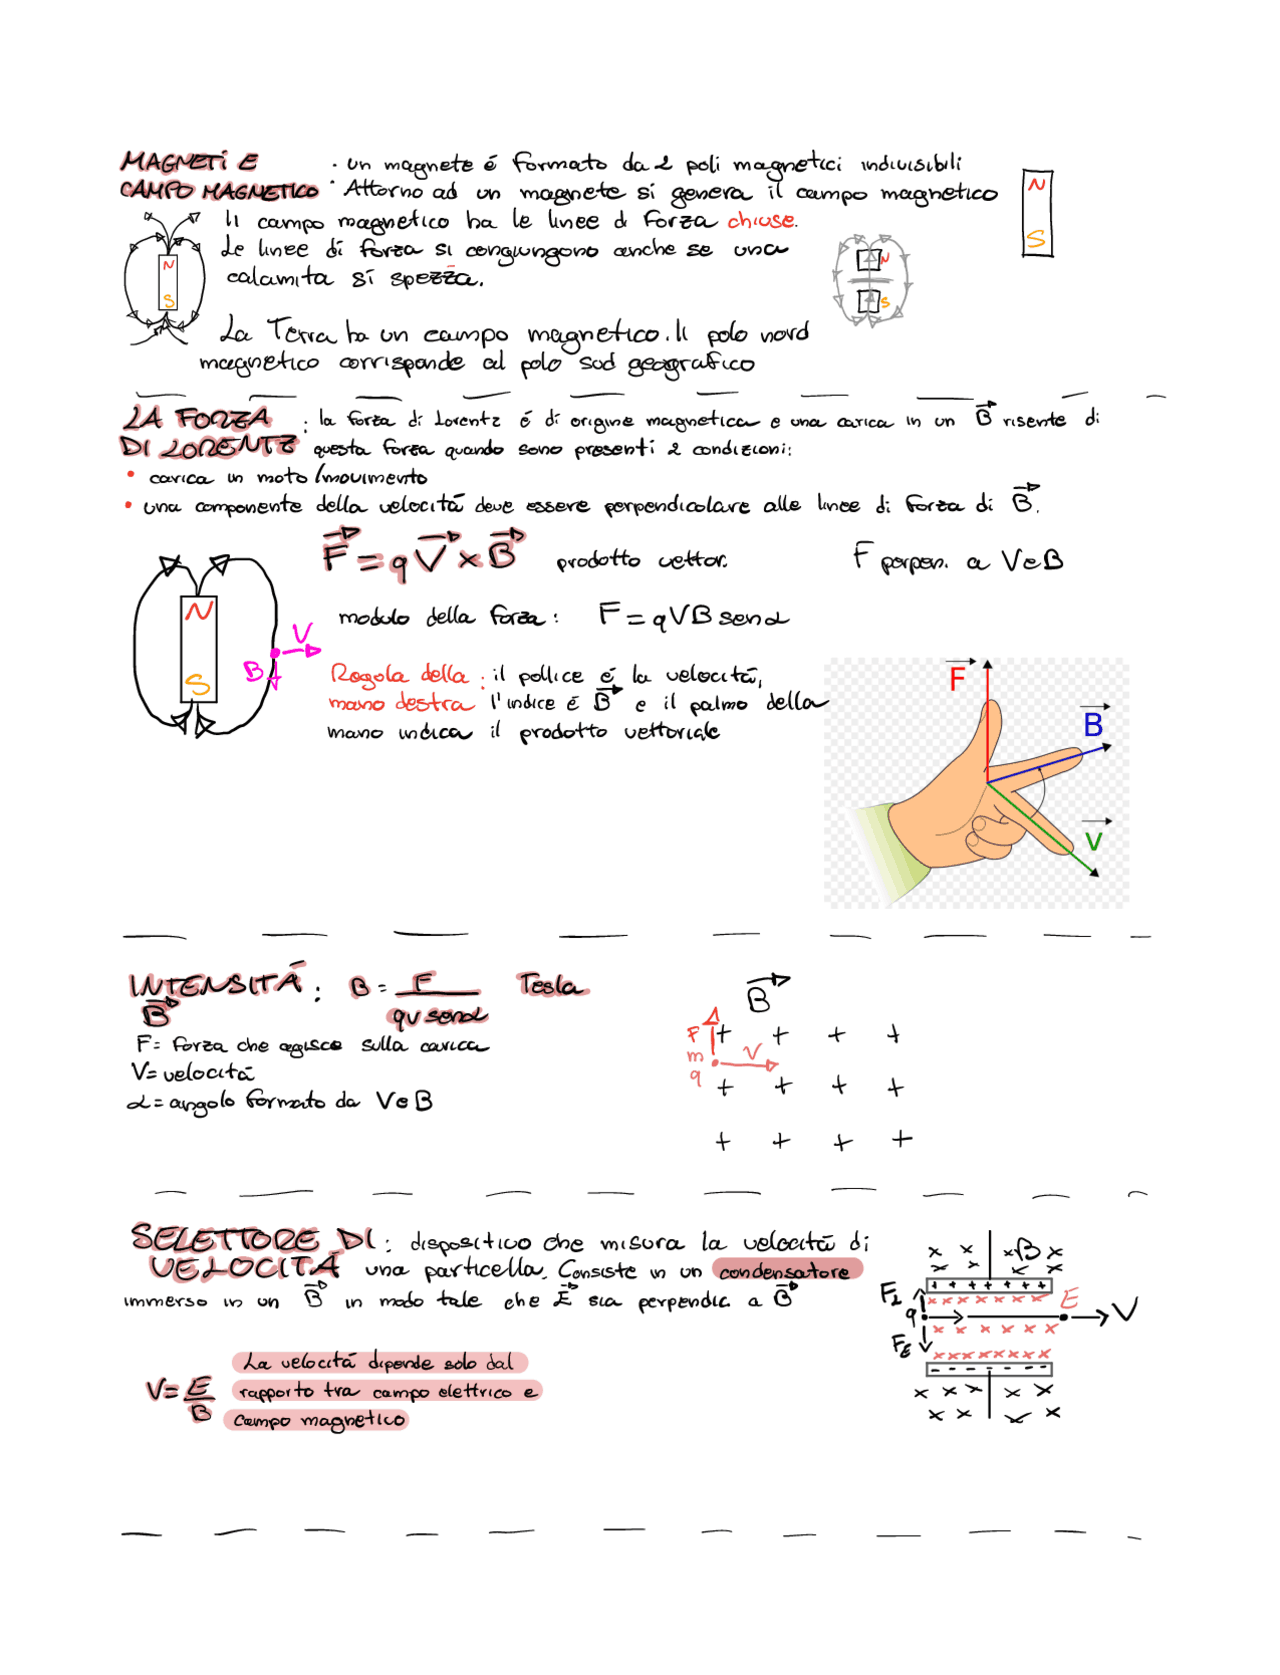 MAGNETI E
CAMPO MAGNETICO
· un magnete é formato da 2 poli magnetici indivisibili
· Attorno ad un magnete si genera il campo magnetico
Il campo magnetico ha le linee d forza chiuse.
Le linee di forza si congiungono anche se una
calamita si spezza.
N
S
N
S
N
S
La Terra ha un campo magnetico. Il polo nord
magnetico corrisponde al polo sud geografico
LA FORZA
DI LORENTZ
: la forza di Lorentz é di origine magnetica e una carica in un B risente di
questa forza quando sono presenti 2 condizioni:
• carica in moto/movimento
• una componente della velocitá deve essere perpendicolare alle linee di forza di B.
F = qV × B prodotto vettor. F perpen. a V e B
modulo della forza: F = qVB sen α
N
S
V
B
Regola della : il pollice é la velocitá,
mano destra l'indice é B e il palmo della
mano indica il prodotto vettoriale
F
B
V
INTENSITÁ : B = F / qv senα Tesla
B
F = forza che agisce sulla carica
V = velocitá
α = angolo formato da V e B
B
F + + + +
m V
q + + + +
+ + + +
SELETTORE DI : dispositivo che misura la velocitá di
VELOCITÁ una particella. Consiste in un condensatore
immerso in un B in modo tale che E sia perpendic. a B
x x x B x
x x x x
+ + + + + + +
FL x x x x x x x E
q V
x x x x x x
FE x x x x x x x
- - - - - - -
x x x x x
x x x x
V = E / B
La velocitá dipende solo dal
rapporto tra campo elettrico e
campo magnetico